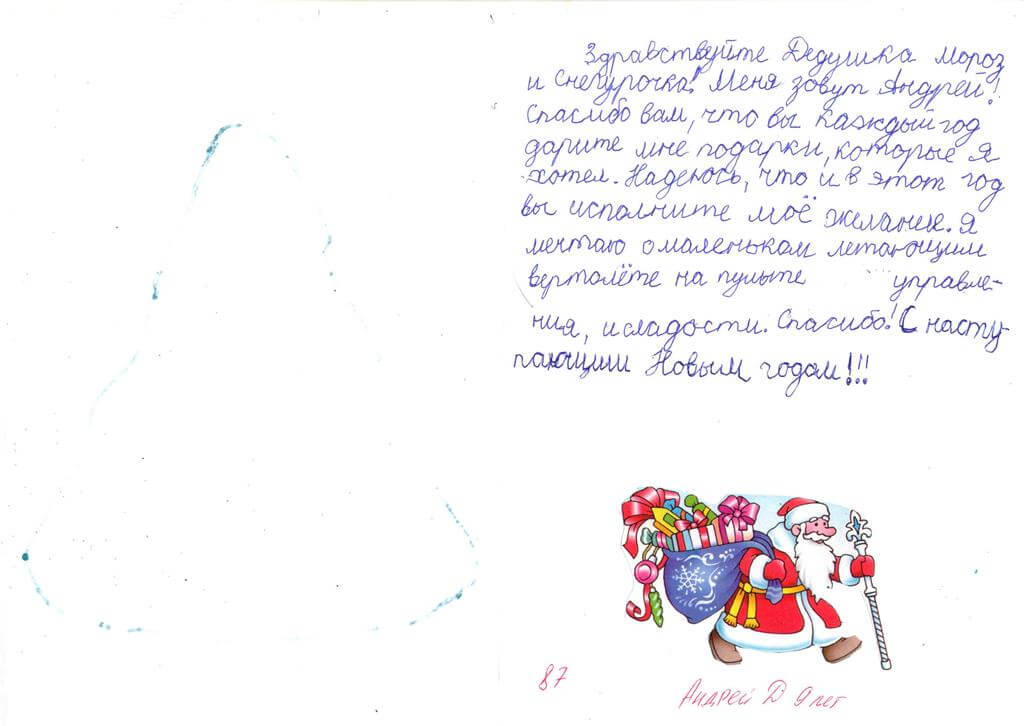 Здравствуйте Дедушка Мороз
и Снегурочка! Меня зовут Андрей!
Спасибо вам, что вы каждый год
дарите мне подарки, которые я
хотел. Надеюсь, что и в этот год
вы исполните моё желание. Я
мечтаю о маленьком летающим
вертолёте на пульте управле-
ния, и сладости. Спасибо! С насту
пающим Новым годом!!!
87
Андрей Д 9 лет